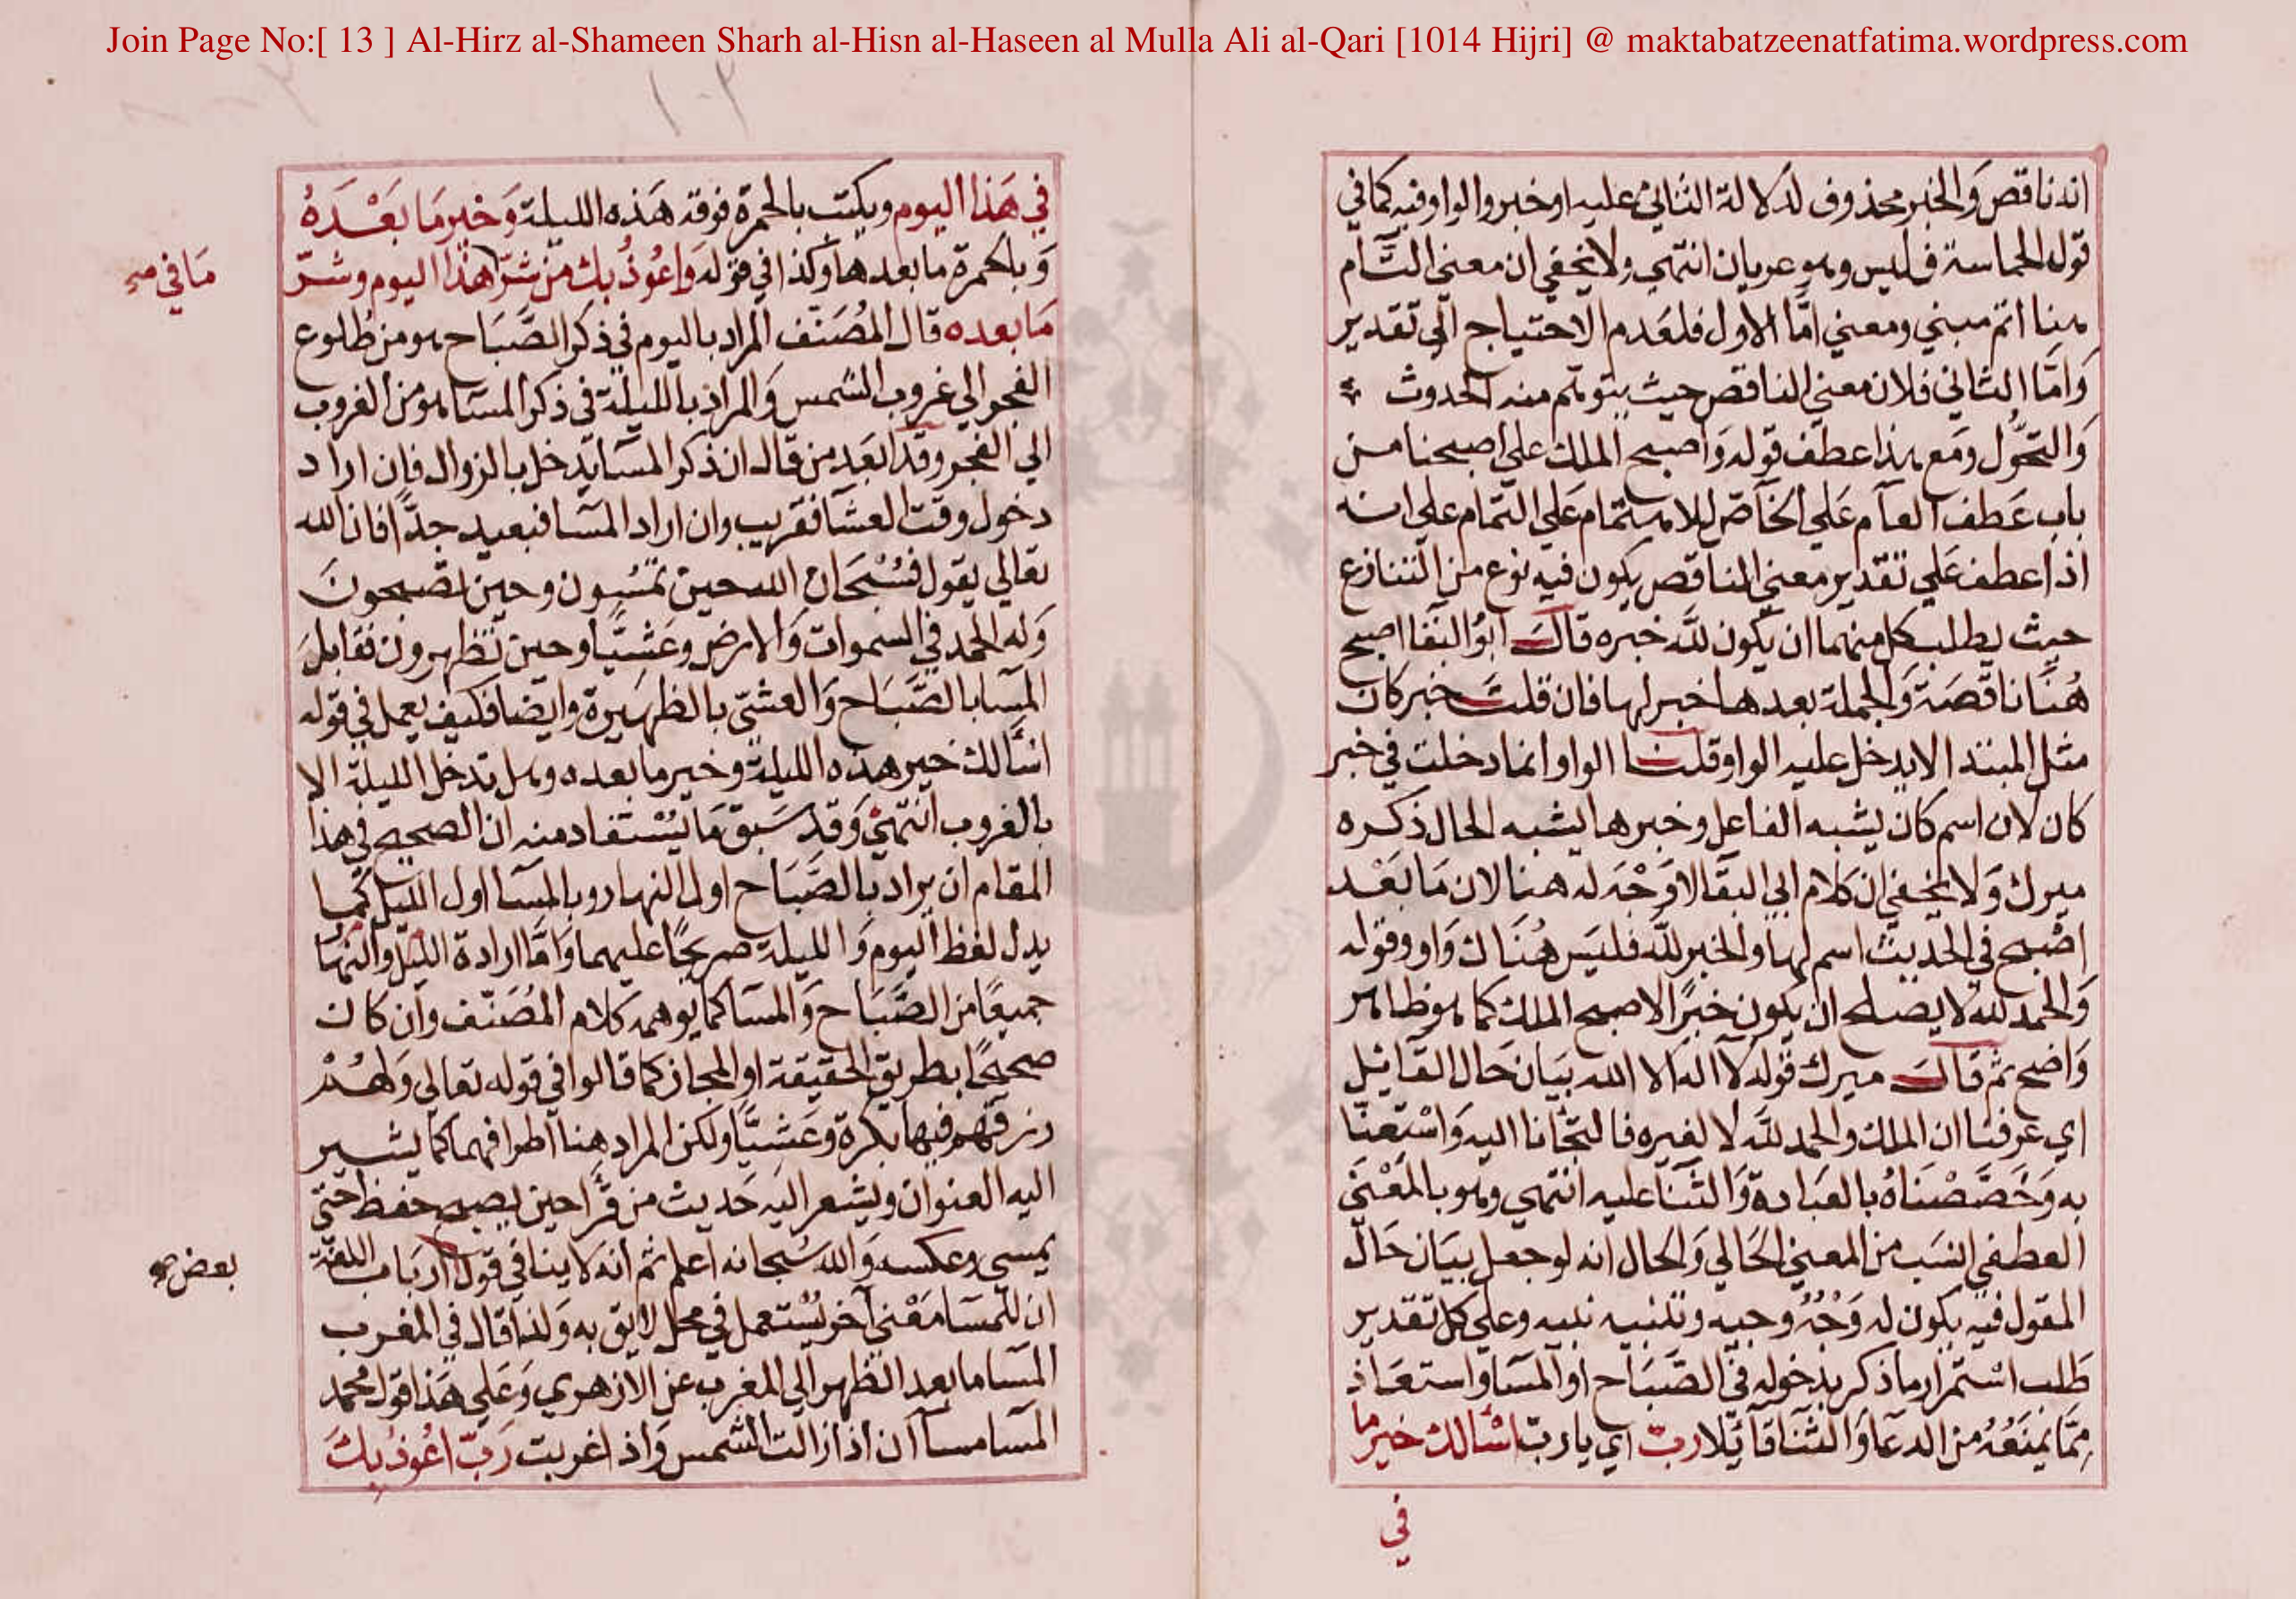 Join Page No:[ 13 ] Al-Hirz al-Shameen Sharh al-Hisn al-Haseen al Mulla Ali al-Qari [1014 Hijri] @ maktabatzeenatfatima.wordpress.com
انه ناقص وَالخبر محذوف لدلالة الثاني عليه او خبر والواو فيه كما في
قوله الحماسة فليس وهو عريان انتهي ولا يخفي ان معني التَّام
هنا اتم مبني ومعني امَّا الاول فلعَدم الاحتياج الي تقدير
وَامَّا الثاني فلان معني الناقص حيث يتوهم منه الحدوث
وَالتحَّول ومَع هذا عطف قوله وَاصبح الملك علي اصبحنا من
باب عَطف العآم عَلي الخآص للاهتمام عَلي التمام علي انه
اذا عطف عَلي تقدير معني الناقص يكون فيه نوع من التنازع
حيث يطلب كل منهما ان يكون للَّه خبره قالَ ابوُ البَقا اصبح
هُنَا ناقصَة وَالجملة بعدها خبر لها فان قلتَ خبر كان
مثل المبتدا لا يدخل عليه الواو قلنا الواو انما دخلت في خبر
كان لان اسم كان يشبه الفاعل وخبرها يشبه الحال ذكره
ميرك وَلا يخفي ان كلام ابي البقَا لا وَجْهَ له هنا لان مَا بَعْد
اصْبح في الحديث اسم لها والخبر للَّه فليَس هُنَاك وَاو وقوله
وَالحمد لله لا يصلح ان يكون خبرًا لاصبح الملك كما هو ظاهر
وَاضح ثم قالَ ميرك قوله لآ اله الا الله بيَان حَال القَائل
اي عَرفنا ان الملك والحمد للَّه لا لغيره فالتجَانا اليه وَاسْتعَنّا
به وَخَصَّصْنَاهُ بالعبَادة وَالثنَا عليه انتهي وهو بالمَعْنَي
العطفي انسَب من المعني الحَالي وَالحال انه لو جعل بيَان حَال
المقول فيه يكون له وَجْهُ وجيه وتنبيه نبيه وعلي كل تقدير
طَلب اسْتمرار ما ذكر بدخوله في الصَّبَاح او المسَا واستعَاذ
مِمَّا يمنَعُهُ من الدعَا وَالثنَا قَائِلا ربّ اي يا ربّ اسْالك خير ما
في
في هَذا اليوم ويكتب بالحمرة فوقه هَذه الليلة وَخير مَا بَعْدَهُ
وَبالحمرة ما بعدها وكذا في قوله وَاعُوذُ بك من شرّ هذا اليوم وشرّ
مَا في صح
مَا بعده قال المُصَنّف المراد باليوم في ذكر الصَّبَاح هو من طُلوع
الفجر الي غروب الشمس وَالمراد بالليلة في ذكر المسَا هو من الغروب
الي الفجر وقد ابعَد من قال ان ذكر المسَا يدخل بالزوال فان اراد
دخول وقت العشَا فقريب وان اراد المسَا فبعيد جدًّا فان الله
تعالي يقول فسُبْحَان الله حين تمسُون وحين تصبحونَ
وَله الحمد في السموات وَالارض وعَشيًّا وحين تظهرون فقابلَ
المسَا بالصَّبَاح وَالعشيّ بالظهيرة وايضا فكيف يعمل في قوله
اسْالك خير هذه الليلة وخير ما بعده وهل تدخل الليلة الا
بالغروب انتهيْ وَقد سَبق مَا يُسْتفاد منه ان الصحيح في هذا
المقام ان يراد بالصَّبَاح اول النهار وبالمسَا اول الليل كما
يدل لفظ اليوم وَالليلة صريحًا عليهما وَامَّا ارادة الليل والنهار
جميعًا من الصَّبَاح وَالمسَا كما يوهمه كلام المُصَنّف وان كان
صحيحًا بطريق الحقيقة او المجاز كما قالوا في قوله تعالي وَلهُمْ
رزقهم فيها بكرة وعَشيًّا ولكن المراد هنا اطرافهما كما يشير
اليه العنوان ويشعر اليه حَديث من قرَا حين يصبح حفظ حتيّ
يمسي وعكسه وَالله سُبحانه اعلم ثم انه لا ينافي قول ارباب اللغة
بعض صح
ان للمسَا مَعْني آخر يُسْتعمل في محل لايق به وَلذا قال في المغرب
المسَا ما بعد الظهر الي المغرب عن الازهري وَعَلي هَذا قول محمد
المسَا مسَاآن اذا زالت الشمس وَاذا غربت رَبّ اعُوذُ بكَ